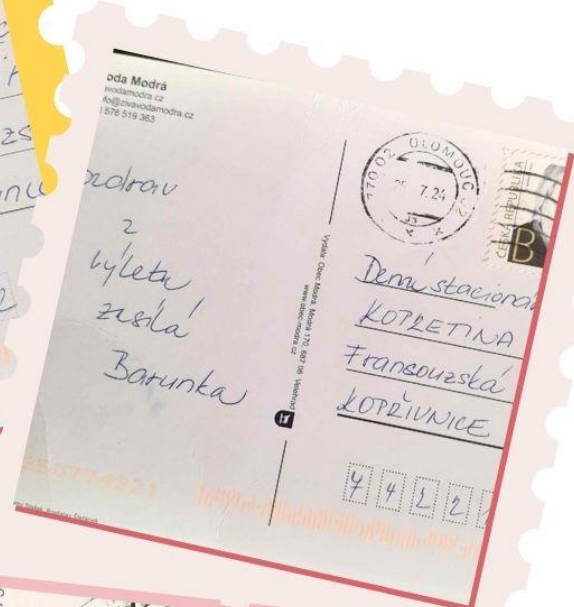 oda Modrá
vodamodra.cz
fo@zivavodamodra.cz
576 519 363
ozdrav
z
výletu
zasílá
Barunka
Vydala: Obec Modrá, Modrá 170, 687 06 Velehrad
www.obec-modra.cz
770 02 OLOMOUC 02
7.24
ČESKÁ REPUBLIKA
B
Denní stacionář
KOPRETINA
Francouzská
KOPŘIVNICE
7 4 2 2 1
250774221